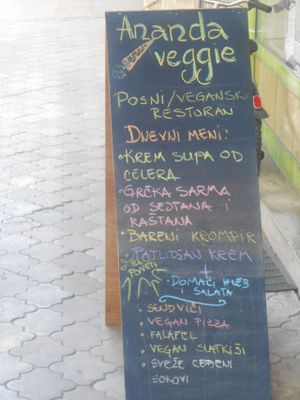 Ananda
veggie
POSNI/VEGANSKI
RESTORAN
DNEVNI MENI:
• KREM SUPA OD
CELERA
• GRČKA SARMA
OD SEJTANA I
RAŠTANA
• BARENI KROMPIR
• PATLIDŽAN KREM
ZA
PONETI
+
• DOMAĆI HLEB
I SALATA
• SENDVIČI
• VEGAN PIZZA
• FALAFEL
• VEGAN SLATKIŠI
• SVEŽE CEĐENI
SOKOVI